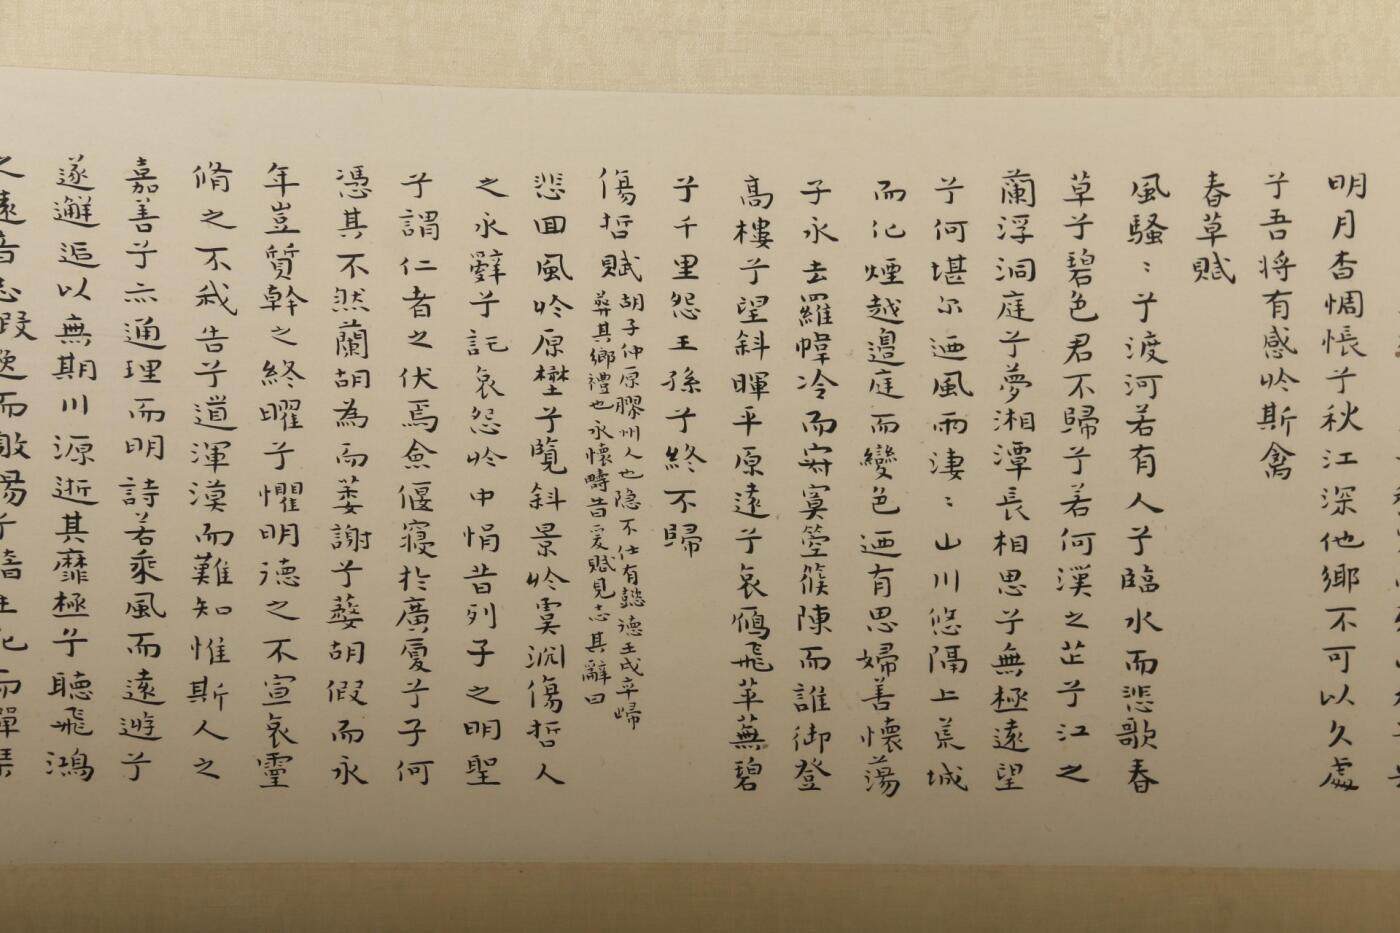 明月杳惆悵兮秋江深他鄉不可以久處
兮吾将有感於斯禽
春草賦
風騷:兮渡河若有人兮臨水而悲歌春
草兮碧色君不歸兮若何漢之芷兮江之
蘭浮洞庭兮夢湘潭長相思兮無極遠望
兮何堪尔迺風雨淒:山川悠隔上荒城
而化煙越邊庭而變色迺有思婦善懷蕩
子永去羅幃冷而寂寞箜篌陳而誰御登
高樓兮望斜暉平原遠兮哀鴈飛苹蕪碧
兮千里怨王孫兮終不歸
傷哲賦
胡子仲原膠州人也隐不仕有懿德壬戌卒歸
葬其鄉禮也永懷疇昔爰賦見志其辭曰
悲回風於原壄兮覽斜景於虞淵傷哲人
之永辭兮託哀怨於中悁昔列子之明聖
兮謂仁者之伏焉僉偃寑於廣夏兮子何
憑其不然蘭胡為而萎謝兮蕣胡假而永
年豈質幹之終曜兮懼明德之不宣哀靈
脩之不我告兮道渾漠而難知惟斯人之
嘉善兮亦通理而明詩若乘風而遠遊兮
遂邂逅以無期川源逝其靡極兮聽飛鴻
之遠音